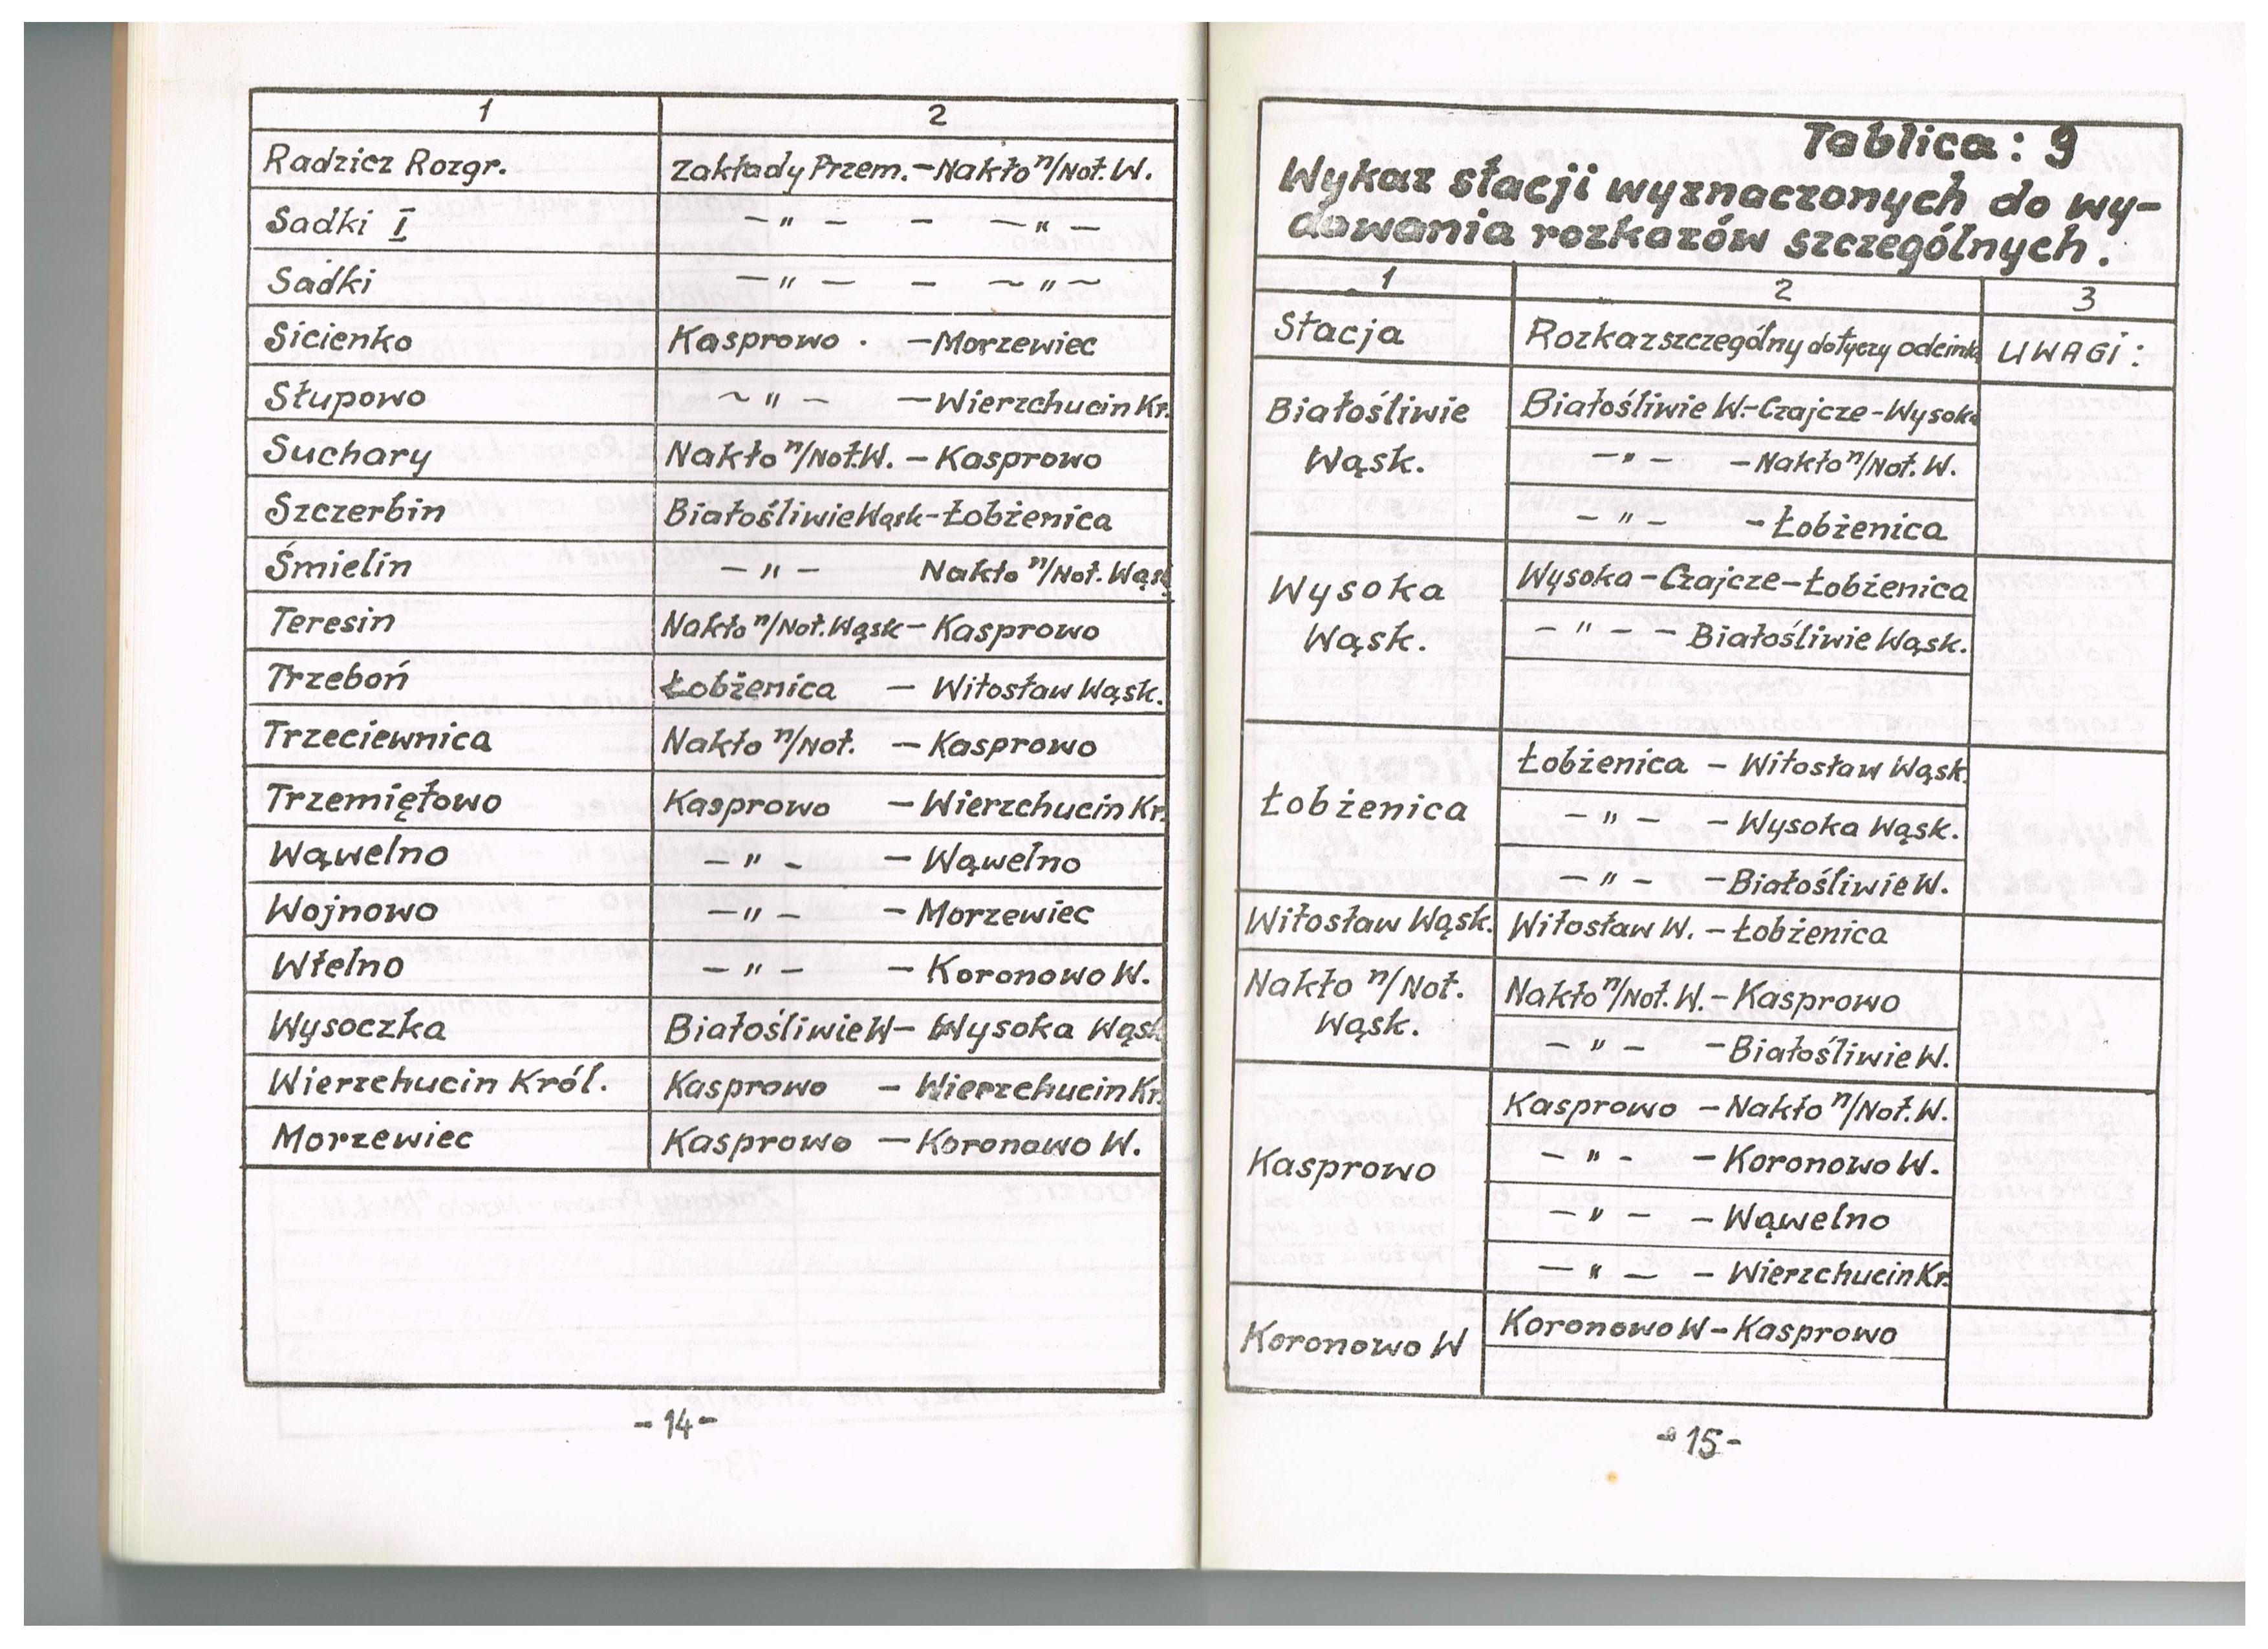 1 2
Radzicz Rozgr. Zakłady Przem. - Nakło n/Not. W.
Sadki I - " - - - " -
Sadki - " - - - " -
Sicienko Kasprowo - Morzewiec
Słupowo - " - - Wierzchucin Kr.
Suchary Nakło n/Not. W. - Kasprowo
Szczerbin Białośliwie Wąsk - Łobżenica
Śmielin - " - Nakło n/Not. Wąsk
Teresin Nakło n/Not. Wąsk - Kasprowo
Trzeboń Łobżenica - Witosław Wąsk.
Trzeciewnica Nakło n/Not. - Kasprowo
Trzemiętowo Kasprowo - Wierzchucin Kr.
Wąwelno - " - - Wąwelno
Wojnowo - " - - Morzewiec
Wtelno - " - - Koronowo W.
Wysoczka Białośliwie W - Wysoka Wąsk
Wierzchucin Król. Kasprowo - Wierzchucin Kr.
Morzewiec Kasprowo - Koronowo W.
- 14 -
Tablica: 9
Wykaz stacji wyznaczonych do wy-
dawania rozkazów szczególnych.
1 2 3
Stacja Rozkaz szczególny dotyczy odcinka UWAGI:
Białośliwie Białośliwie W. - Czajcze - Wysoka
Wąsk. - " - - Nakło n/Not. W.
- " - - Łobżenica
Wysoka Wysoka - Czajcze - Łobżenica
Wąsk. - " - - Białośliwie Wąsk.
Łobżenica - Witosław Wąsk.
Łobżenica - " - - Wysoka Wąsk.
- " - - Białośliwie W.
Witosław Wąsk. Witosław W. - Łobżenica
Nakło n/Not. Nakło n/Not. W. - Kasprowo
Wąsk. - " - - Białośliwie W.
Kasprowo - Nakło n/Not. W.
Kasprowo - " - - Koronowo W.
- " - - Wąwelno
- " - - Wierzchucin Kr.
Koronowo W Koronowo W - Kasprowo
- 15 -